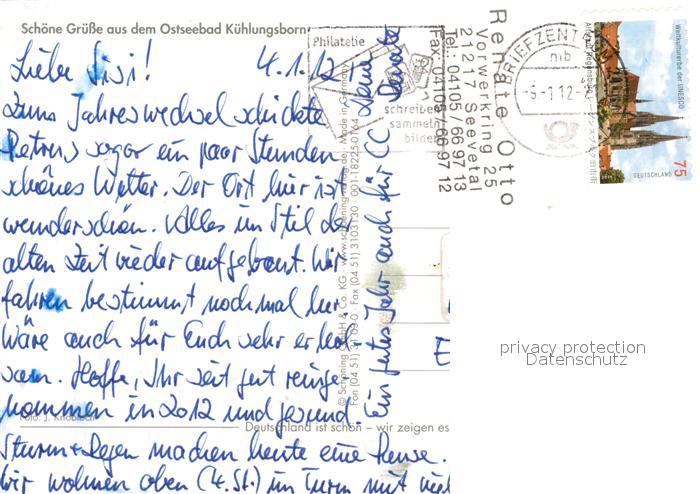 Schöne Grüße aus dem Ostseebad Kühlungsborn
Liebe Sisi! 4.1.12
Zum Jahreswechsel schickte
Petrus sogar ein paar Stunden
schönes Wetter. Der Ort hier ist
wunderschön. Alles im Stil der
alten Zeit wieder aufgebaut. Wir
fahren bestimmt noch mal her.
Wäre auch für Euch sehr erhol-
sam. Hoffe, Ihr seit gut reinge-
kommen in 2012 und gesund.
Sturm + Regen machen heute eine Pause.
Wir wohnen oben (4. St.) im Turm mit
Ein gutes Jahr auch für CC
Renate
Foto: J. Knobloch
Deutschland ist schön – wir zeigen es
© Schöning GmbH & Co. KG · www.schoening-verlag.de · Made in Germany
Fon (04 51) 3 10 3-0 · Fax (04 51) 3103130 · 001-18225 0164
Philatelie
schreiben
sammeln
bilden
Renate Otto
Vorwerkring 25
21217 Seevetal
Tel.: 04105 / 66 97 13
Fax: 04105 / 66 97 12
BRIEFZENTRUM
mb
-5-1 12-
Weltkulturerbe der UNESCO
Altstadt Regensburg
DEUTSCHLAND
75
privacy protection
Datenschutz